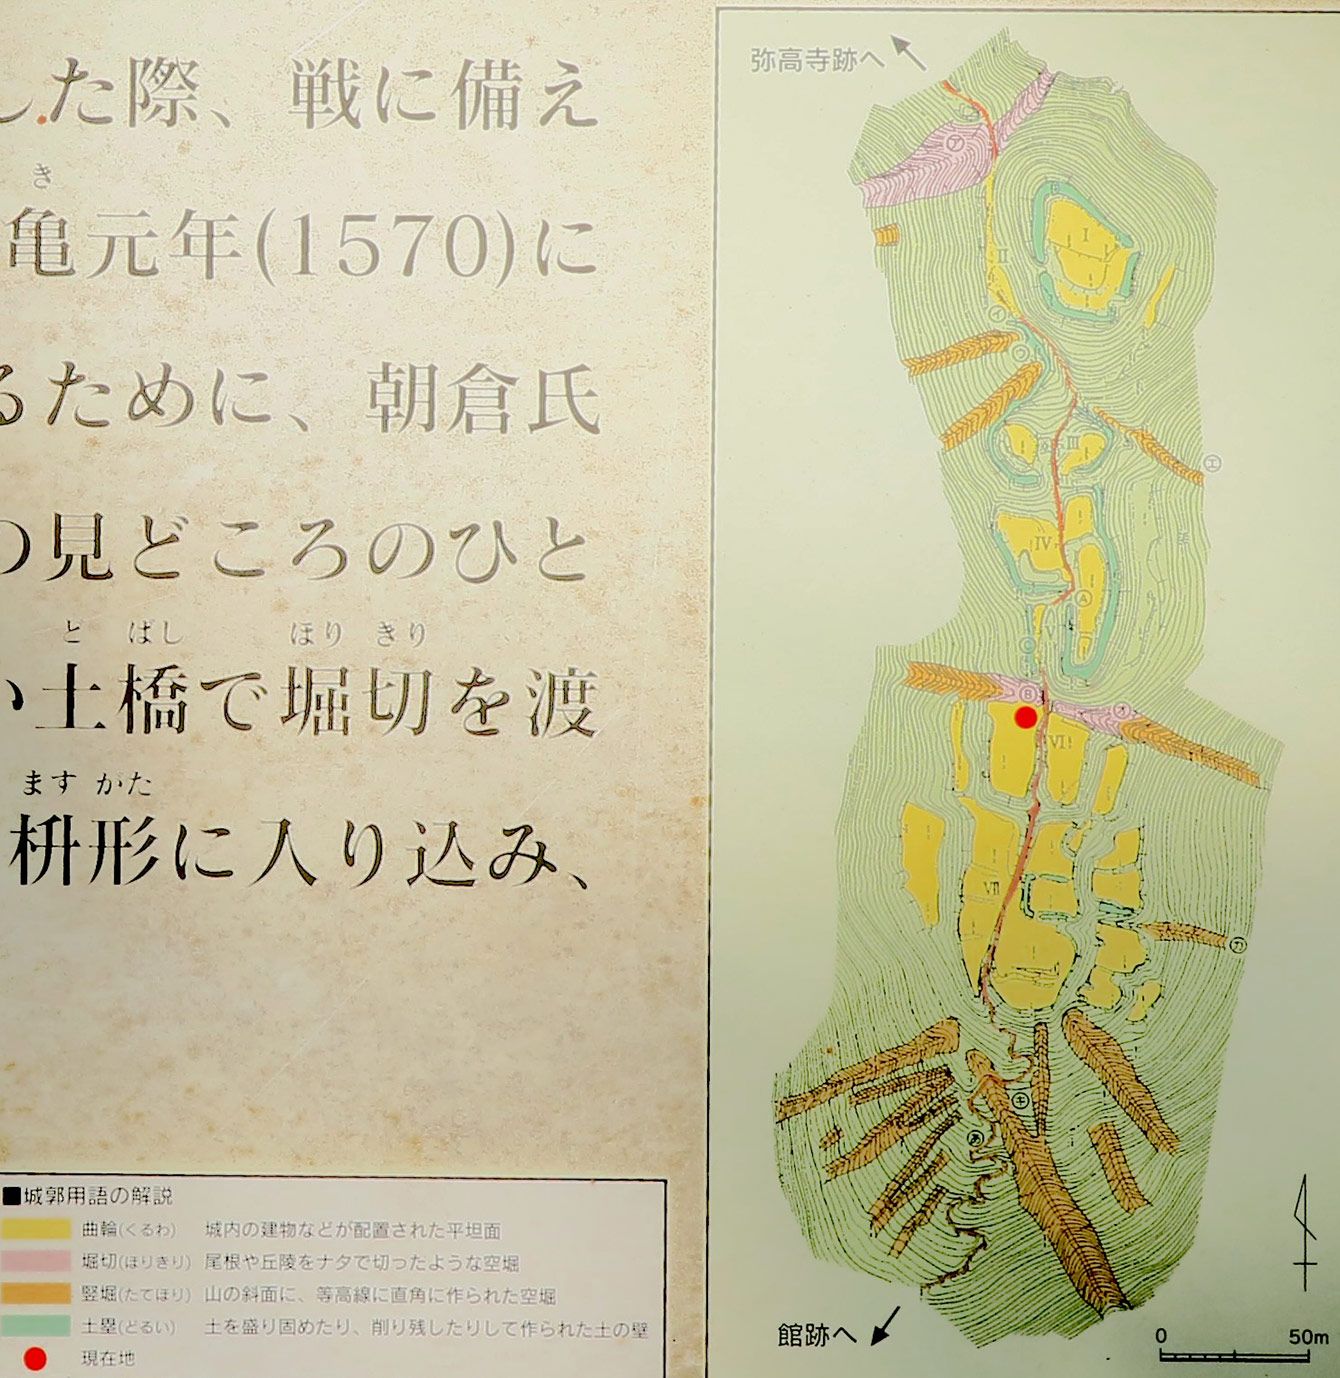 した際、戦に備え
き
亀元年(1570)に
るために、朝倉氏
の見どころのひと
と ばし ほり きり
い土橋で堀切を渡
ます がた
枡形に入り込み、
■城郭用語の解説
曲輪(くるわ) 城内の建物などが配置された平坦面
堀切(ほりきり) 尾根や丘陵をナタで切ったような空堀
竪堀(たてほり) 山の斜面に、等高線に直角に作られた空堀
土塁(どるい) 土を盛り固めたり、削り残したりして作られた土の壁
現在地
弥高寺跡へ
ア
I
II
イ
ウ
III
エ
IV
A
V
B
オ
VI
VII
カ
キ
あ
館跡へ
0 50m